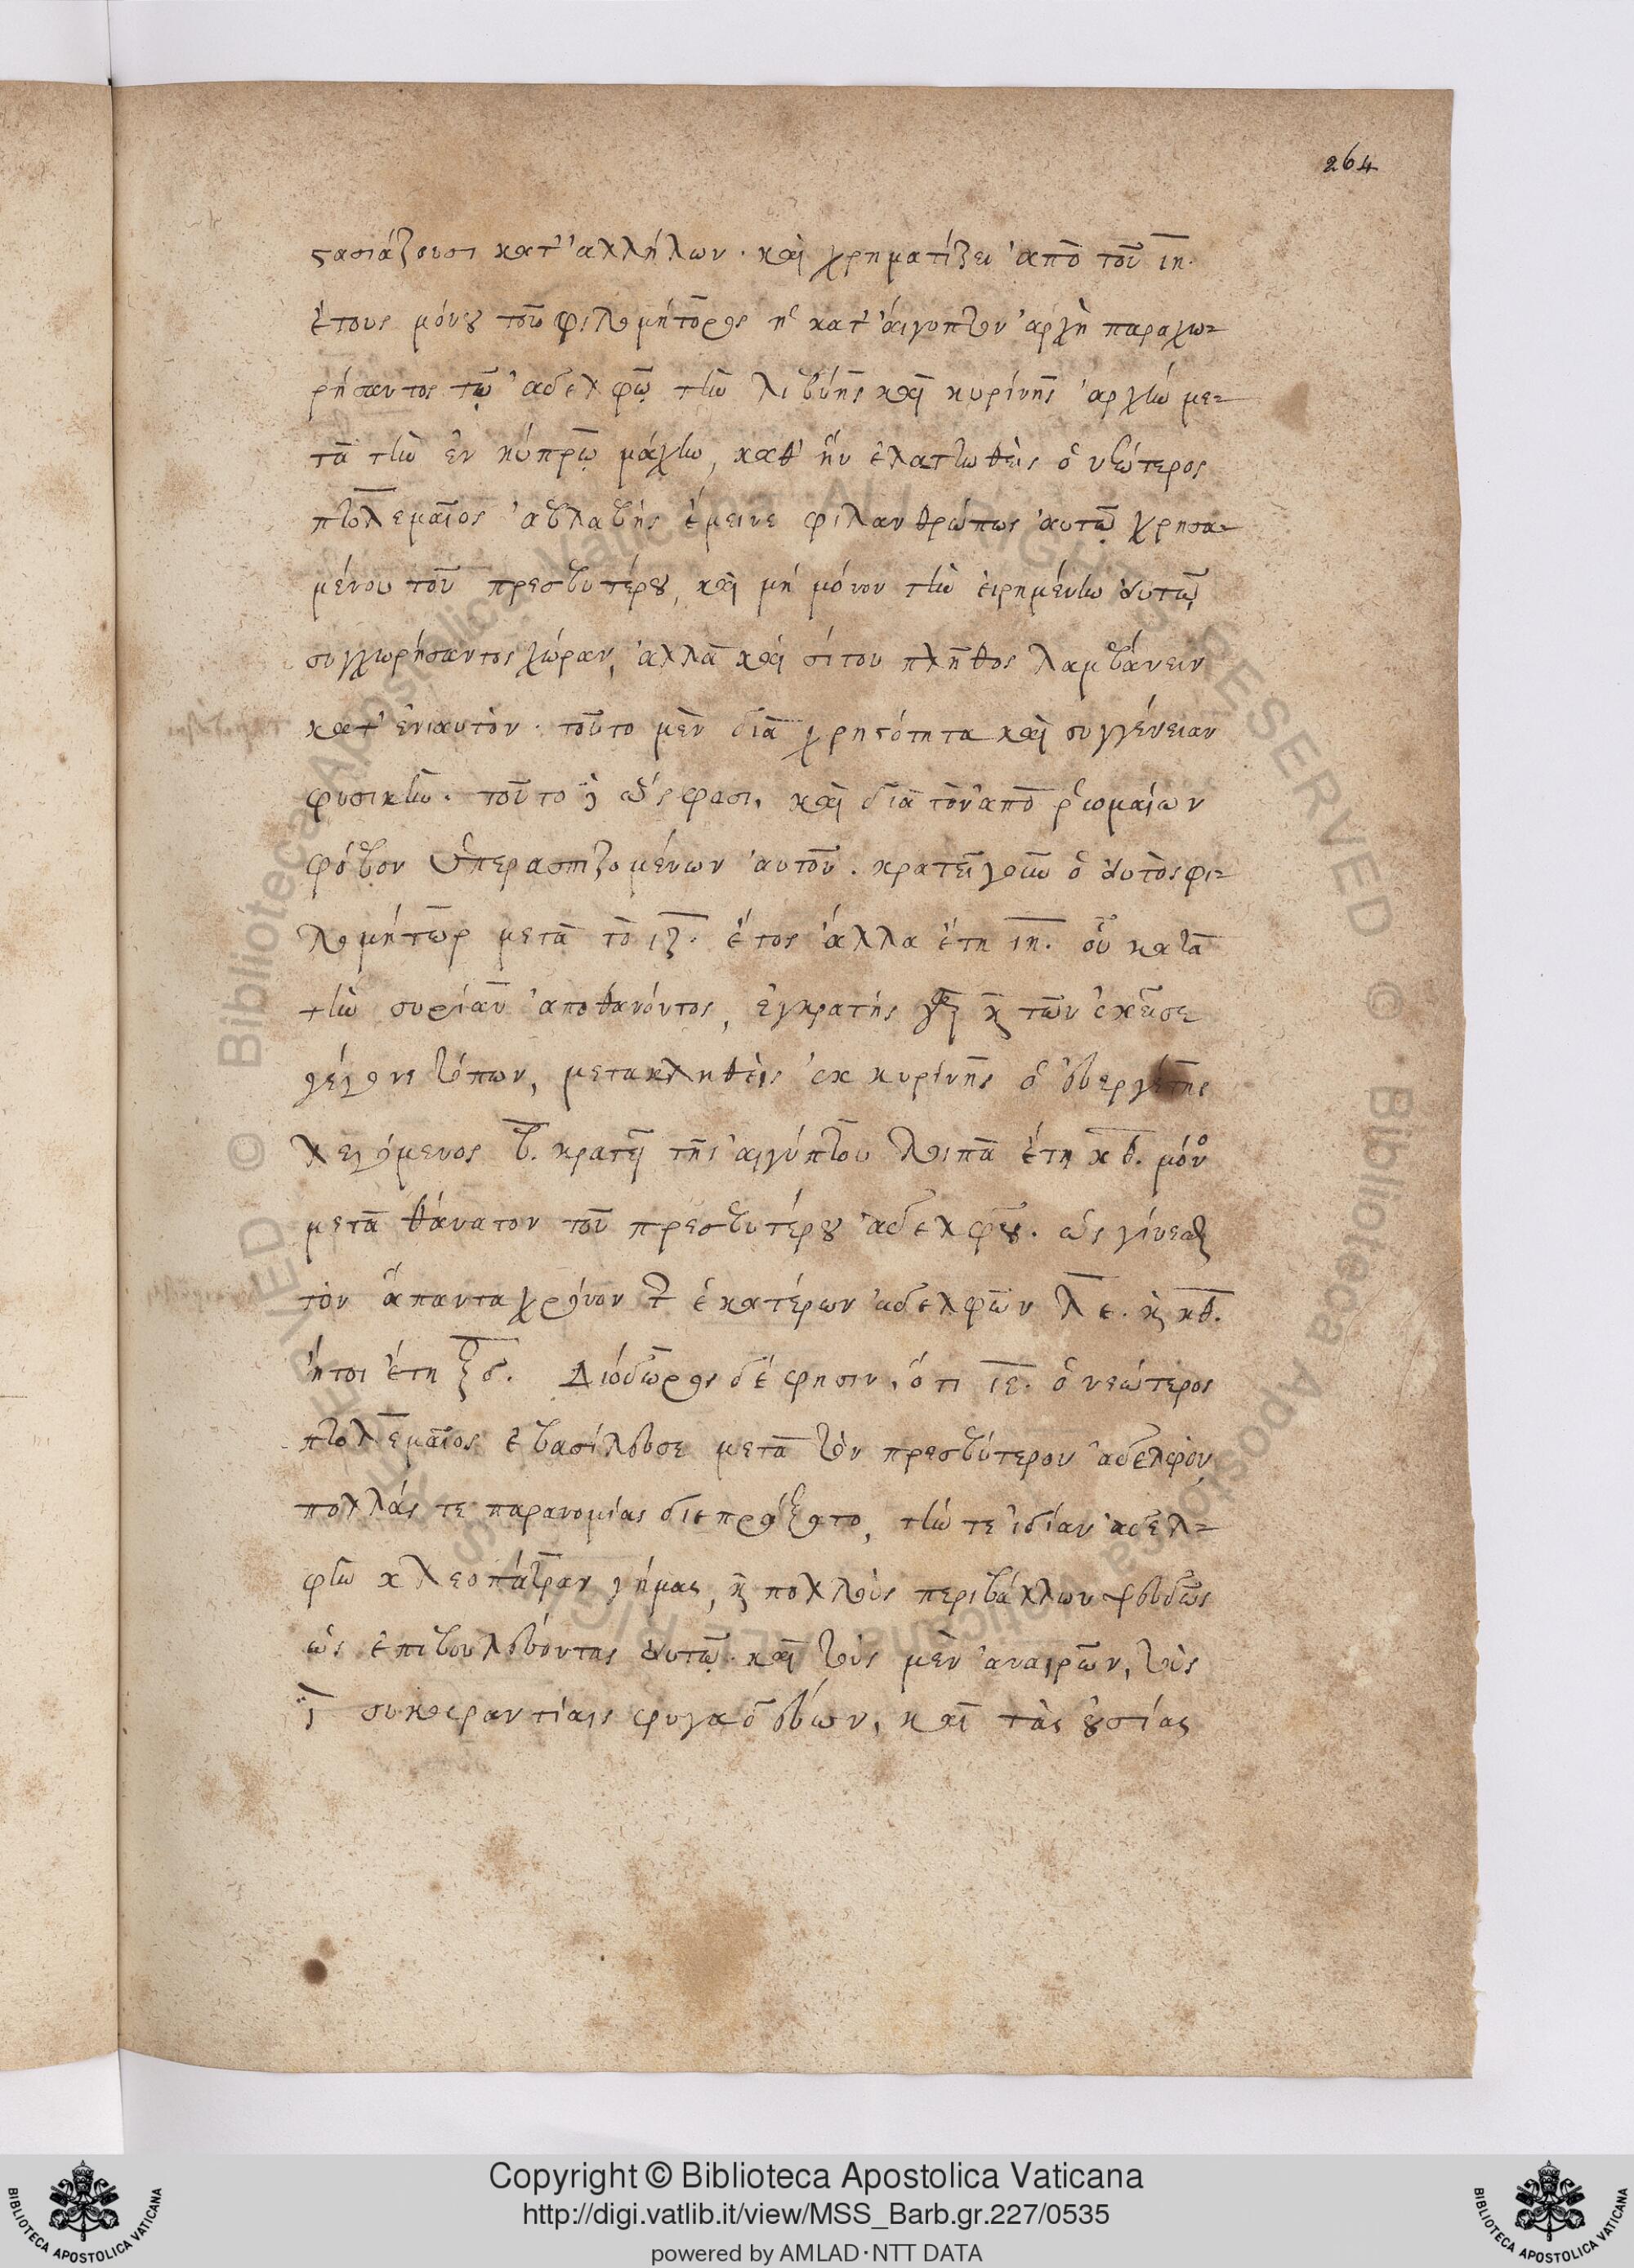 264
στασιάζουσι κατ' ἀλλήλων · καὶ χρηματίζει ἀπὸ τοῦ ιη.
ἔτους μόνου τοῦ φιλομήτορος ἡ κατ' ἀίγυπτον ἀρχὴ παραχω-
ρήσαντος τῷ ἀδελφῷ τὴν λιβύης καὶ κυρίνης ἀρχὴν με-
τὰ τὴν ἐν κύπρῳ μάχην, καθ' ἣν ἐλαττωθεὶς ὁ νεώτερος
πτολεμαῖος ἀβλαβὴς ἔμεινε φιλανθρώπως ἀυτῷ χρησα-
μένου τοῦ πρεσβυτέρου, καὶ μὴ μόνον τὴν εἰρημένην ἀυτῷ
συγχωρήσαντος χώραν, ἀλλὰ καὶ σίτου πλῆθος λαμβάνειν
κατ' ἐνιαυτὸν · τοῦτο μὲν διὰ χρηστότητα καὶ συγγένειαν
φυσικὴν · τοῦτο δὲ ὥς φασι, καὶ διὰ τὸν ἀπὸ ῥωμαίων
φόβον ὑπερασπιζομένων ἀυτοῦ · κρατεῖ γοῦν ὁ ἀυτὸς φι-
λομήτωρ μετὰ τὸ ιζ. ἔτος ἄλλα ἔτη ιη. οὗ κατὰ
τὴν συρίαν ἀποθανόντος, ἐγκρατὴς γὰρ καὶ τῶν ἐκεῖσε
γέγονε τόπων, μετακληθεὶς ἐκ κυρίνης ὁ ἐυεργέτης
λεγόμενος β. κρατεῖ τῆς ἀιγύπτου λοιπὰ ἔτη κθ. μόνος
μετὰ θάνατον τοῦ πρεσβυτέρου ἀδελφοῦ · ὡς γίνεσθαι
τὸν ἅπαντα χρόνον τῶν ἑκατέρων ἀδελφῶν λε. καὶ κθ.
ἤτοι ἔτη ξδ. Διόδωρος δέ φησιν, ὅτι ιε. ὁ νεώτερος
πτολεμαῖος ἐβασίλευσε μετὰ τὸν πρεσβύτερον ἀδελφὸν,
πολλάς τε παρανομίας διεπράξατο, τήν τε ἰδίαν ἀδελ-
φὴν κλεοπάτραν γήμας, καὶ πολλοὺς περιβάλλων ψευδῶς
ὡς ἐπιβουλεύοντας ἀυτῷ · καὶ τοὺς μὲν ἀναιρῶν, τοὺς
δὲ συκοφαντίαις φυγαδεύων, καὶ τὰς οὐσίας
Copyright © Biblioteca Apostolica Vaticana
http://digi.vatlib.it/view/MSS_Barb.gr.227/0535
powered by AMLAD·NTT DATA